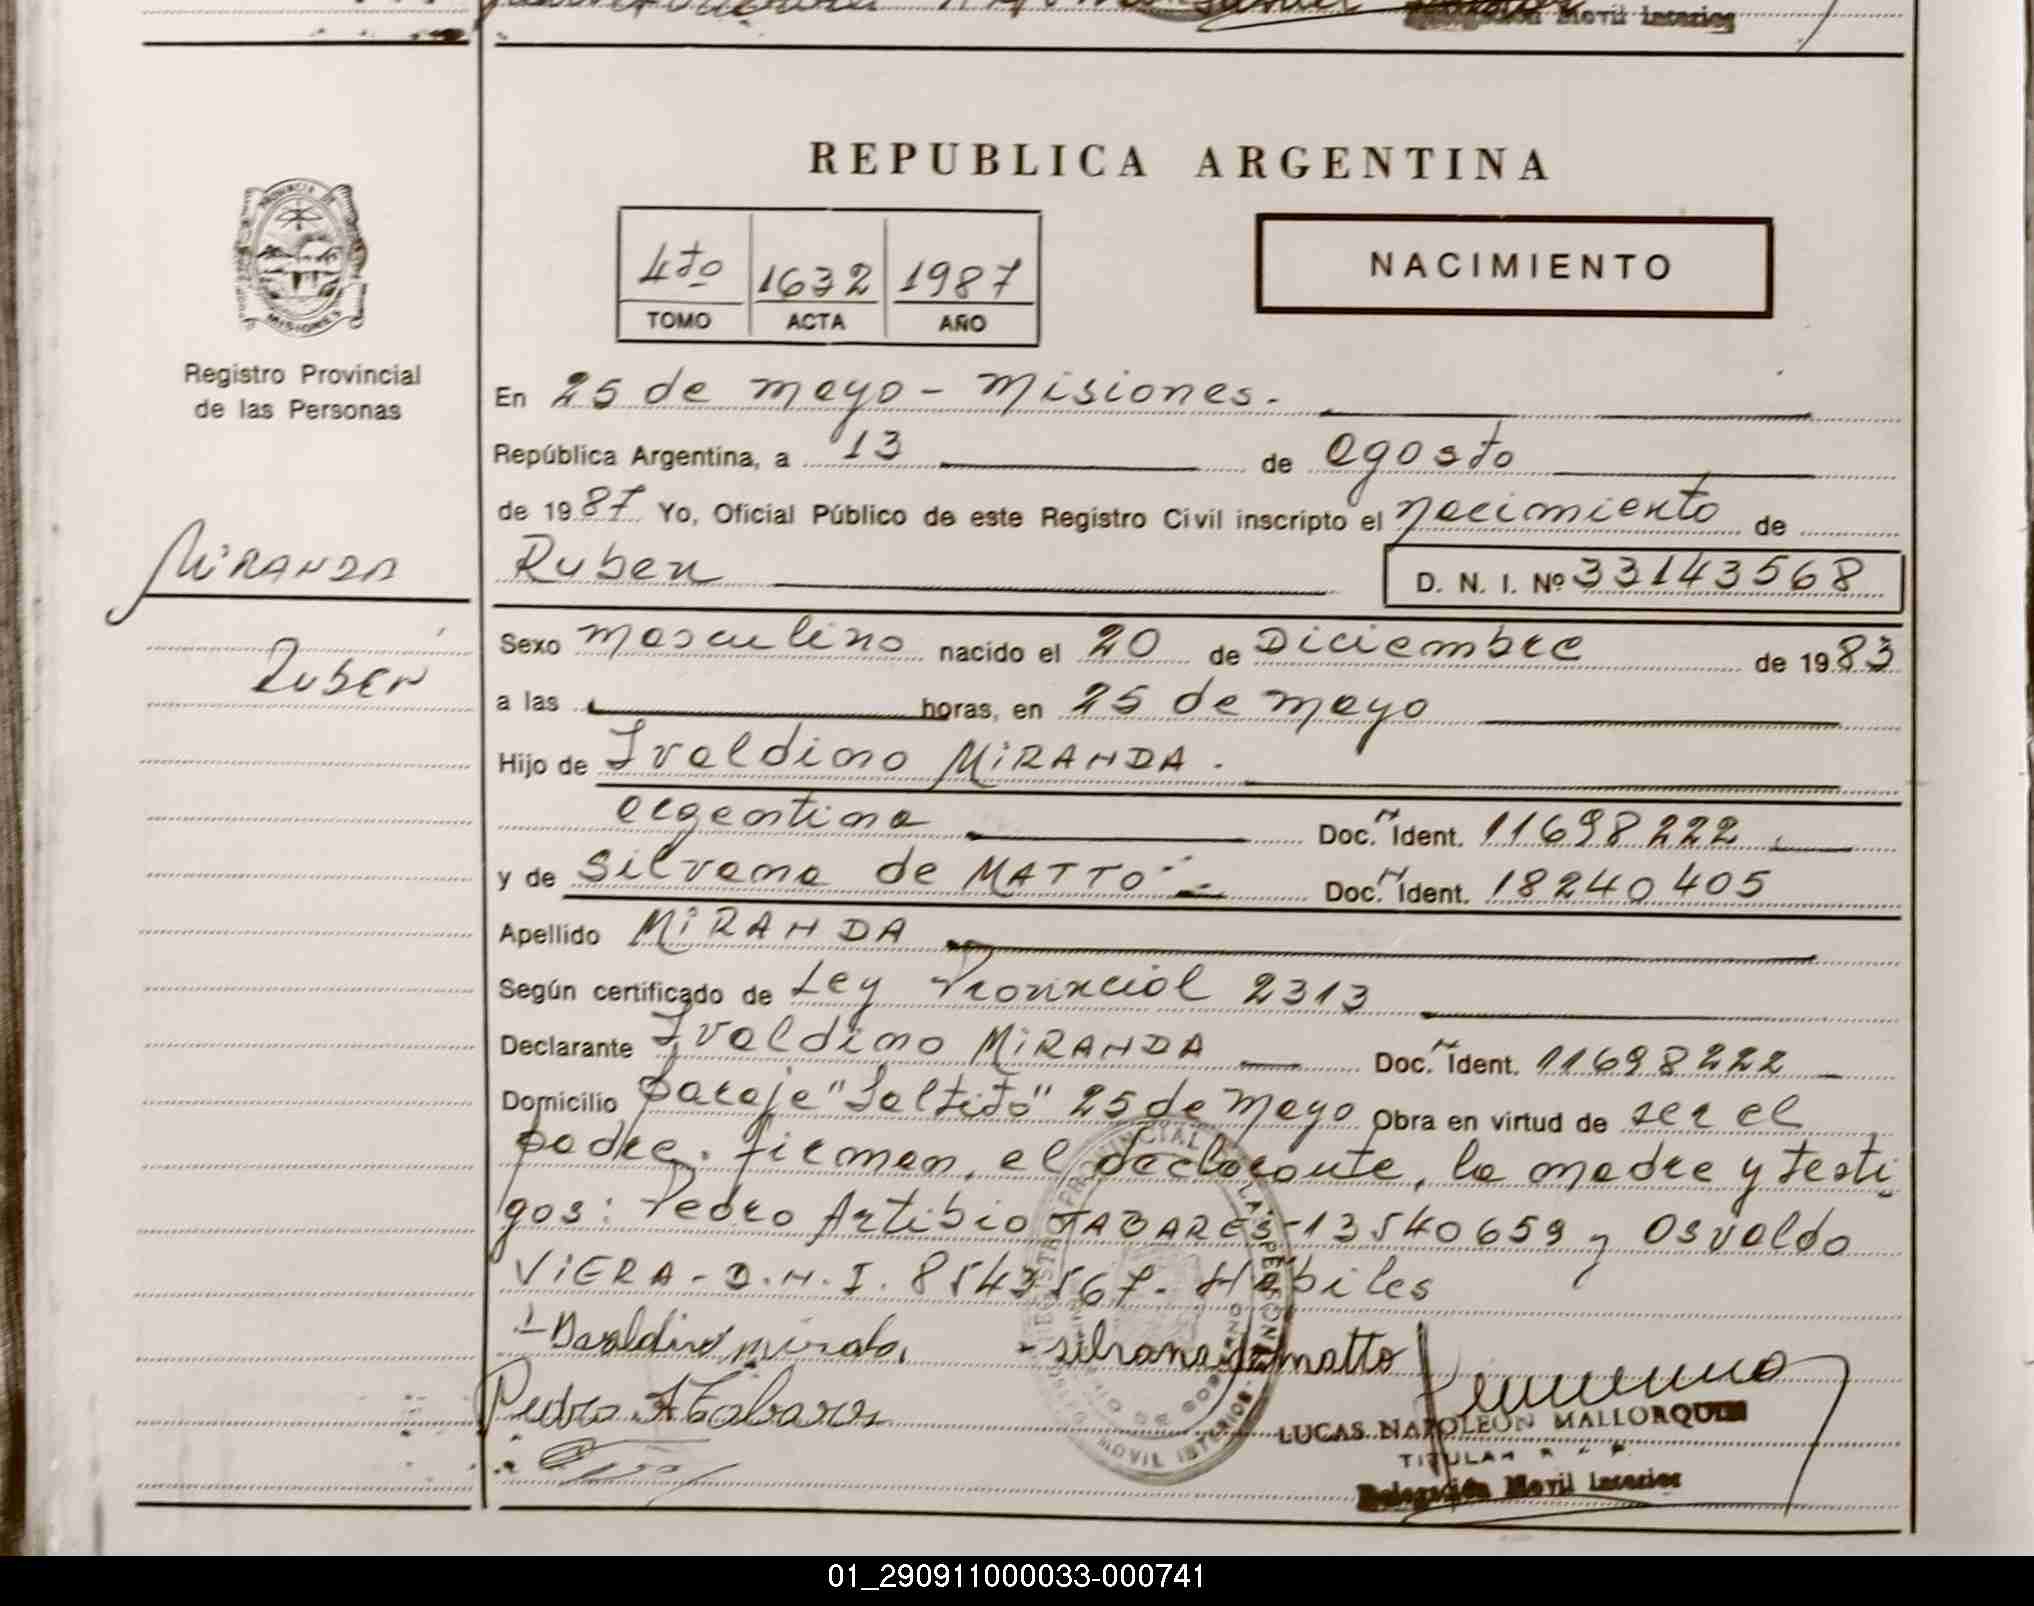 REPUBLICA ARGENTINA
PROVINCIA DE
MISIONES
4to 1632 1987
TOMO ACTA AÑO
NACIMIENTO
Registro Provincial
de las Personas
En 25 de mayo - Misiones.
República Argentina, a 13 de agosto
de 1987 Yo, Oficial Público de este Registro Civil inscripto el nacimiento de
MIRANDA
Ruben
D. N. I. Nº 33143568
Ruben
Sexo masculino nacido el 20 de Diciembre de 1983
a las horas, en 25 de mayo
Hijo de Ivaldino MIRANDA.
argentina Doc. N Ident. 11698222
y de Silvana de MATTO Doc. N Ident. 18240405
Apellido MIRANDA
Según certificado de Ley Provincial 2313
Declarante Ivaldino MIRANDA Doc. N Ident. 11698222
Domicilio paraje "Saltito" 25 de Mayo Obra en virtud de ser el
padre. firman, el declarante, la madre y testi
gos: Pedro Artibio TABARES-13540659 y Osvaldo
VIERA - D.N.I. 8543567. Habiles
silvana de matto
Pedro A Tabares
LUCAS NAPOLEON MALLORQUIN
TITULAR
Delegación Movil Interior
01_290911000033-000741